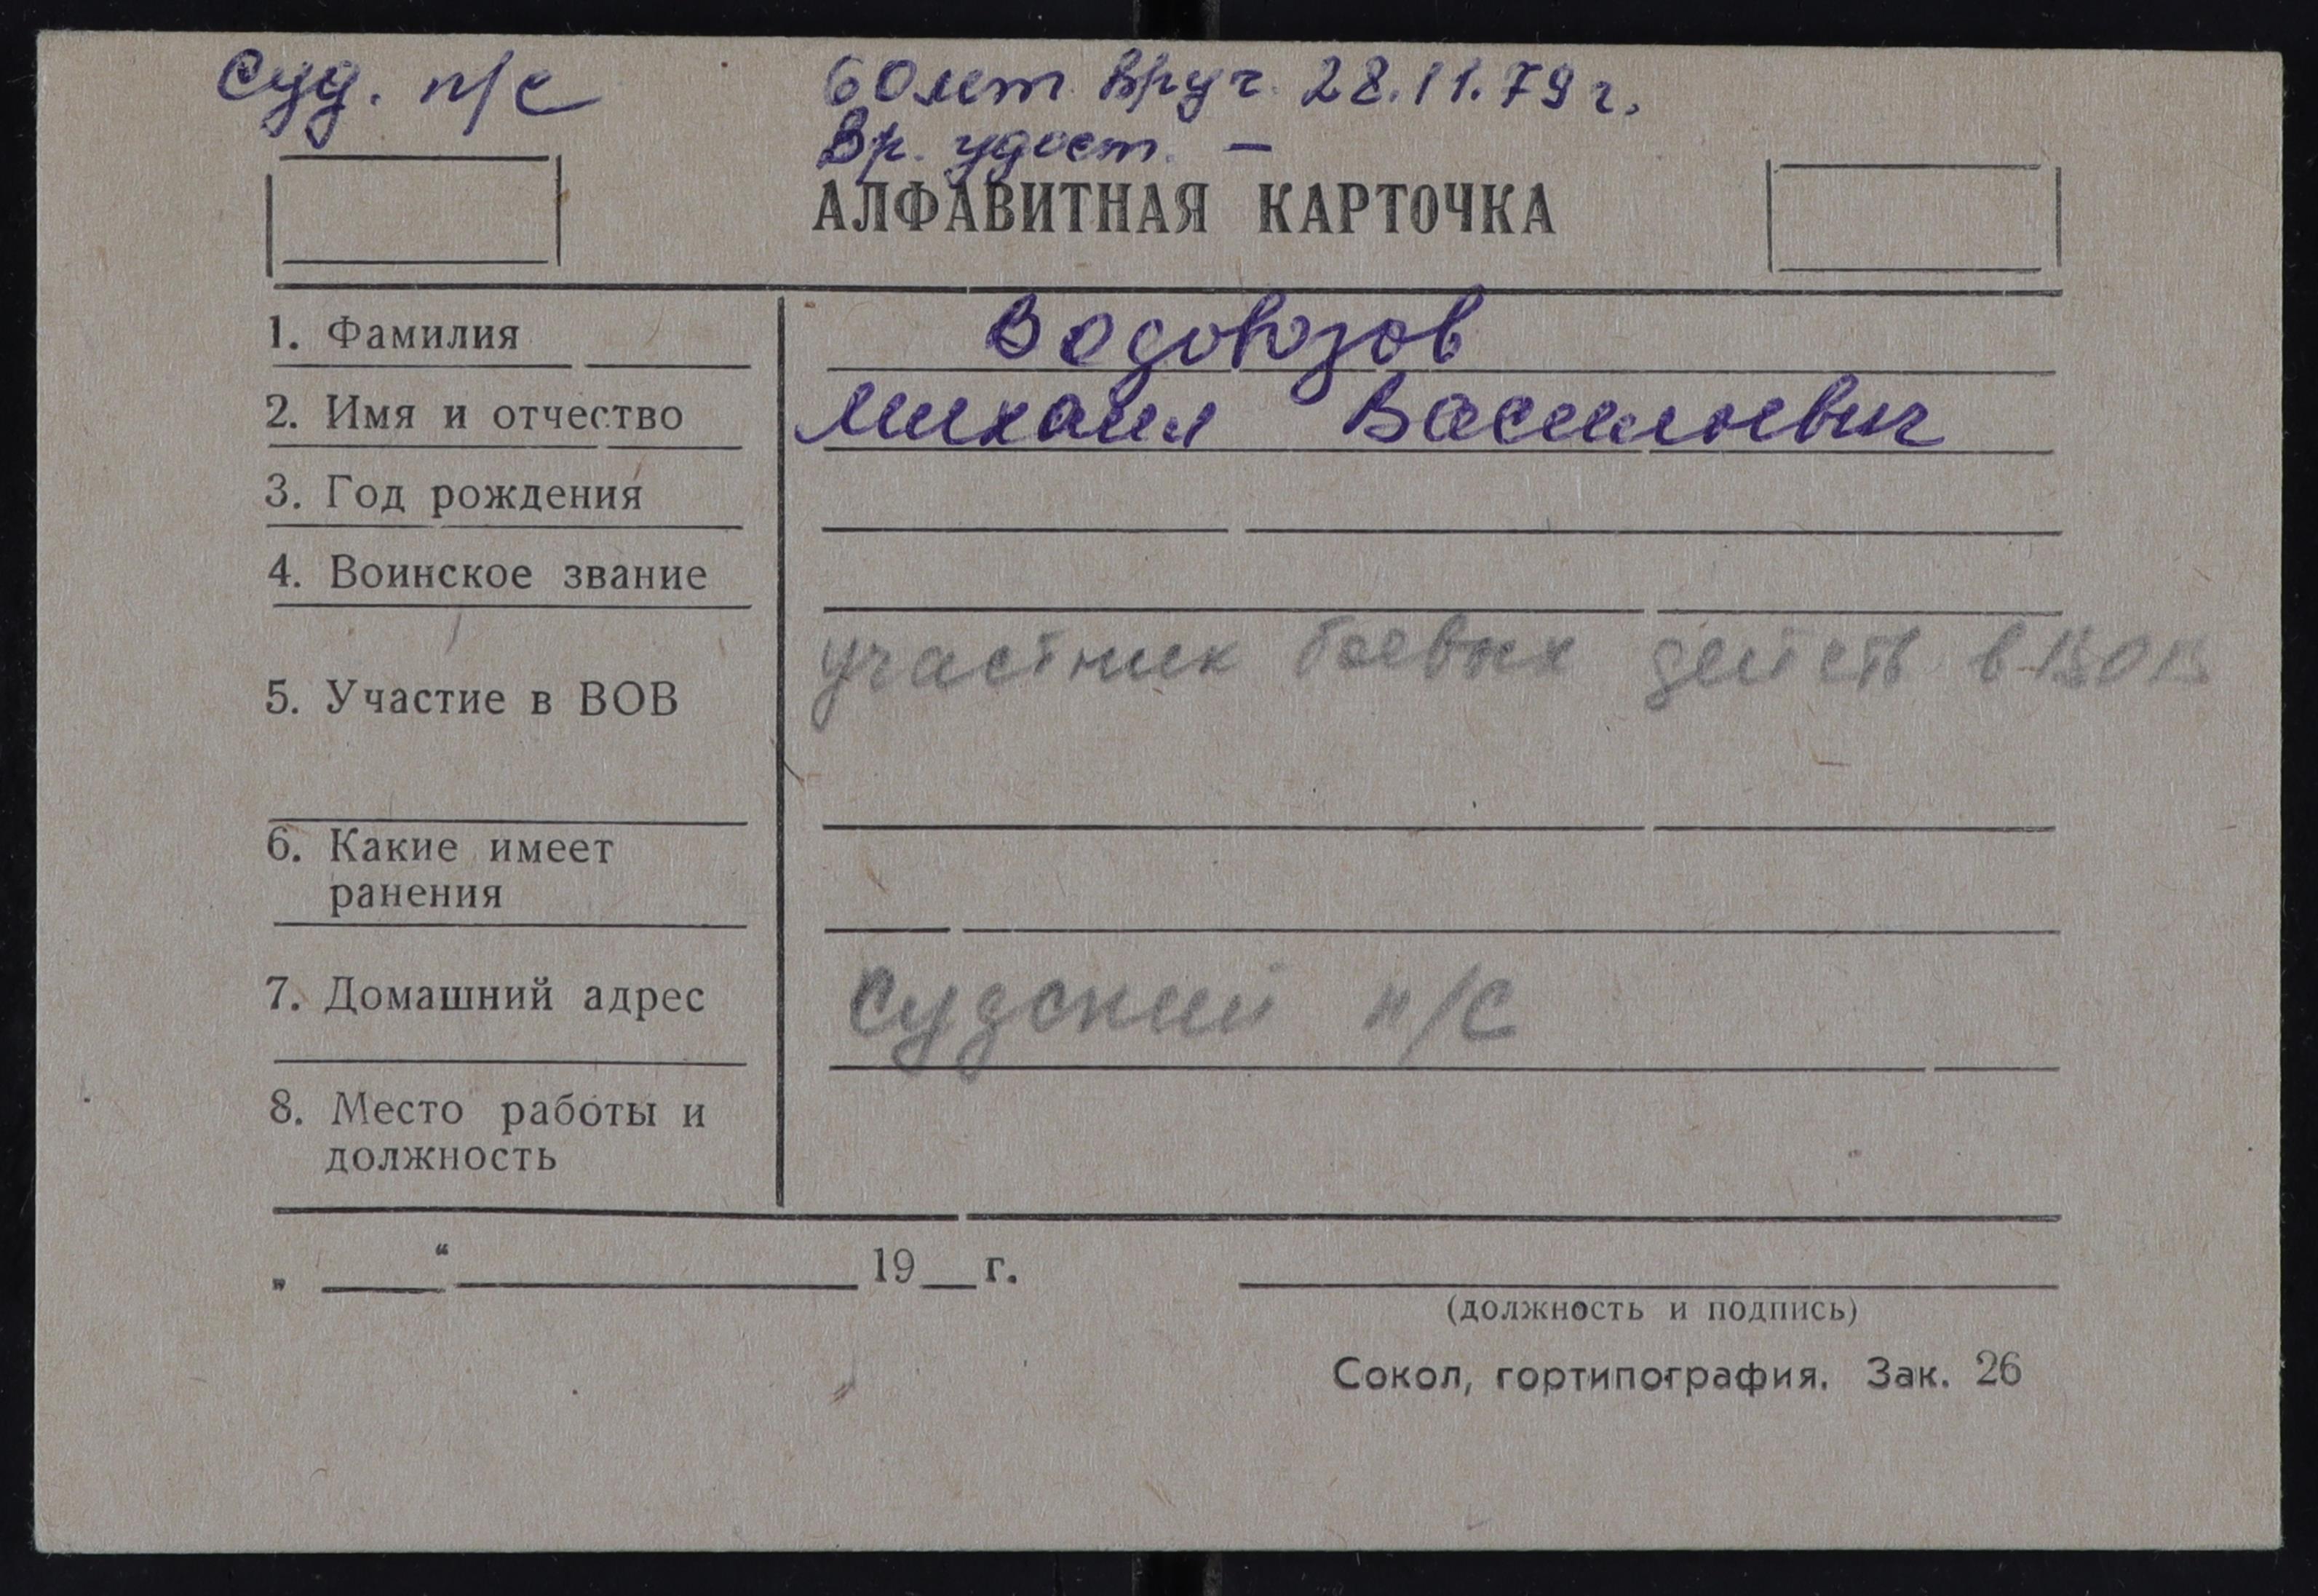 Суд. п/с
60 лет вруч. 28.11.79 г.
Вр. удост. –
АЛФАВИТНАЯ КАРТОЧКА
1. Фамилия Водовозов
2. Имя и отчество Михаил Васильевич
3. Год рождения
4. Воинское звание
5. Участие в ВОВ участник боевых действ в ВОВ
6. Какие имеет
ранения
7. Домашний адрес Судский п/с
8. Место работы и
должность
„ ___ “ ___ 19__ г.
(должность и подпись)
Сокол, гортипография. Зак. 26